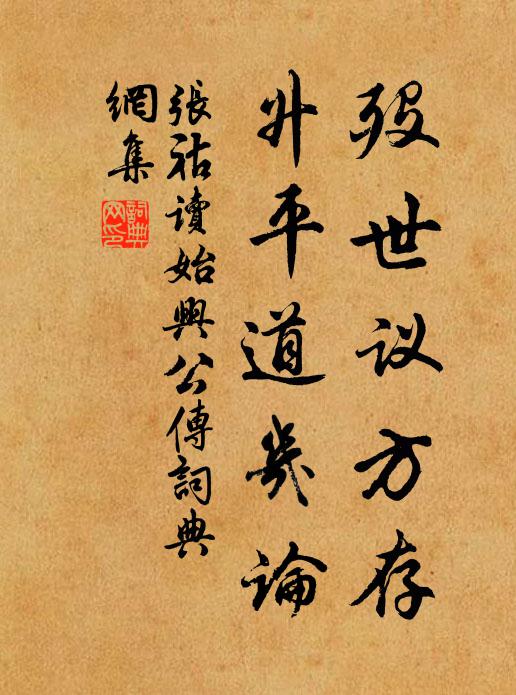 殁世议方存
升平道几论
張祜讀始興公傳詞典
網集
詞典网印